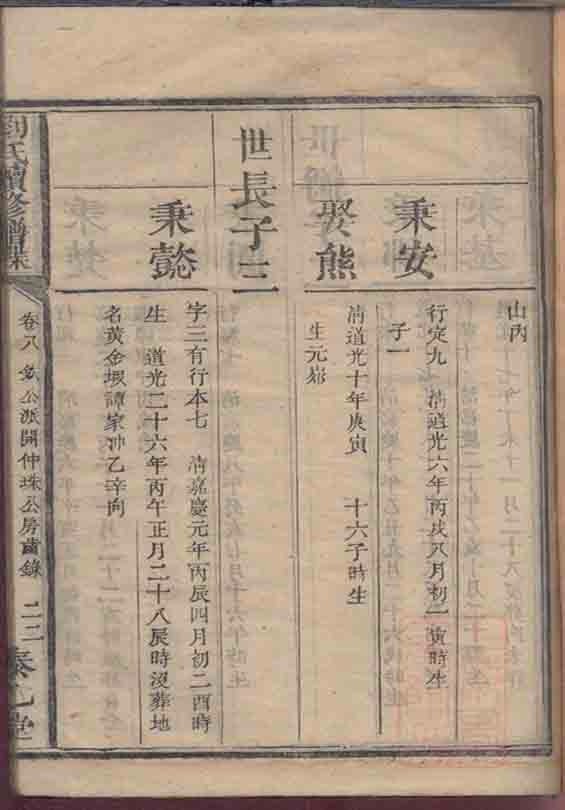 山丙
秉安
行定九　清道光六年丙戌八月初一寅時生
子一
娶熊
清道光十年庚寅　十六子時生
生元
世長子三
秉懿
字三有行本七　清嘉慶元年丙辰四月初二酉時
生　道光二十六年丙午正月二十八辰時沒葬地
名黃金塅譚家冲乙辛向
劉氏續修譜
卷八　公派開仲珠公房齒錄　二二